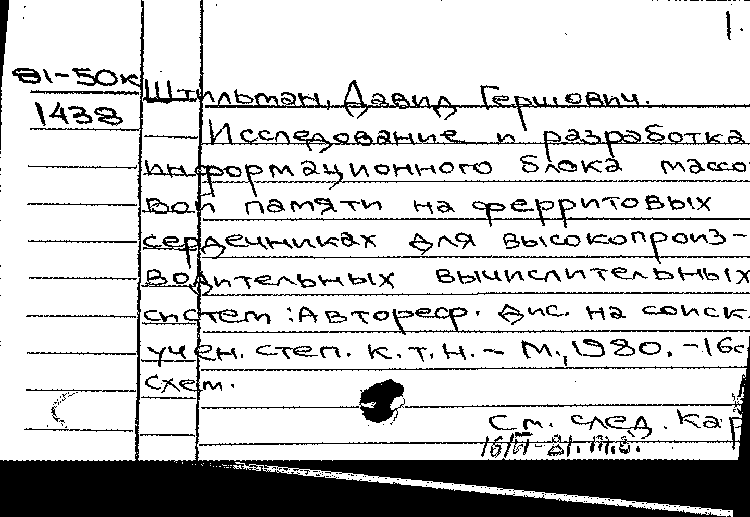 1.
81-50к
1438
Штильман, Давид Гершович.
Исследование и разработка
информационного блока массо
вой памяти на ферритовых
сердечниках для высокопроиз-
водительных вычислительных
систем : Автореф. дис. на соиск.
учен. степ. к.т.н. – М., 1980. – 16с
схем.
См. след. кар